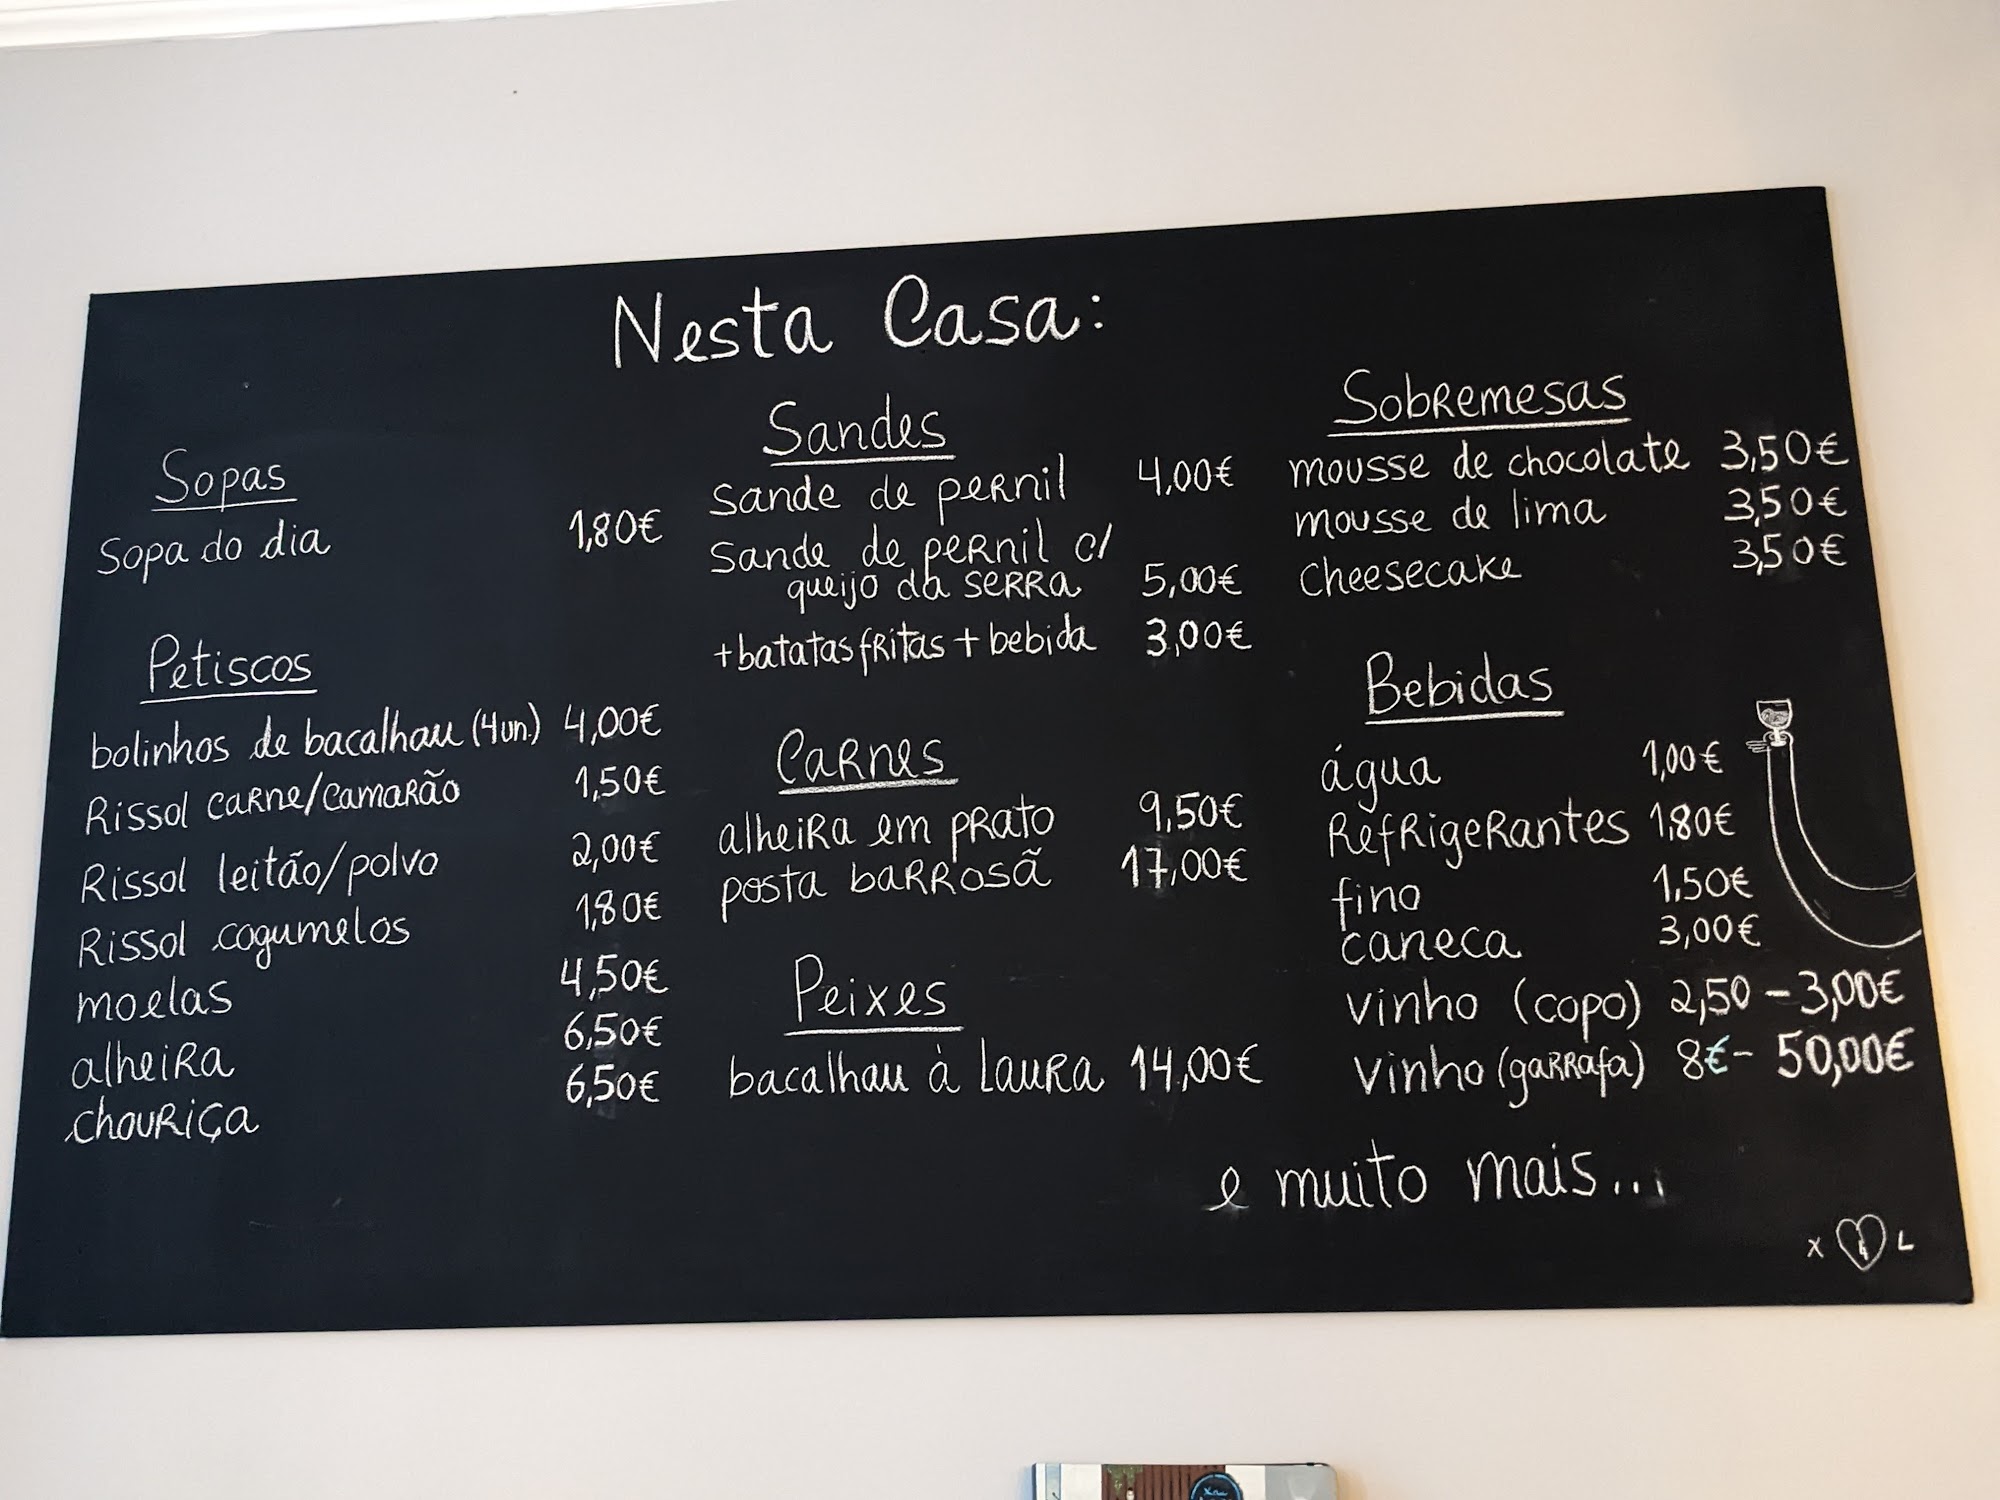 Nesta Casa:
Sopas
Sopa do dia 1,80€
Petiscos
bolinhos de bacalhau (4un.) 4,00€
Rissol carne/camarão 1,50€
Rissol leitão/polvo 2,00€
Rissol cogumelos 1,80€
moelas 4,50€
alheira 6,50€
chouriça 6,50€
Sandes
Sande de pernil 4,00€
Sande de pernil c/
queijo da serra 5,00€
+batatas fritas + bebida 3,00€
Carnes
alheira em prato 9,50€
posta barrosã 17,00€
Peixes
bacalhau à Laura 14,00€
Sobremesas
mousse de chocolate 3,50€
mousse de lima 3,50€
cheesecake 3,50€
Bebidas
água 1,00€
Refrigerantes 1,80€
fino 1,50€
caneca 3,00€
vinho (copo) 2,50 - 3,00€
vinho (garrafa) 8€ - 50,00€
e muito mais...
X & L